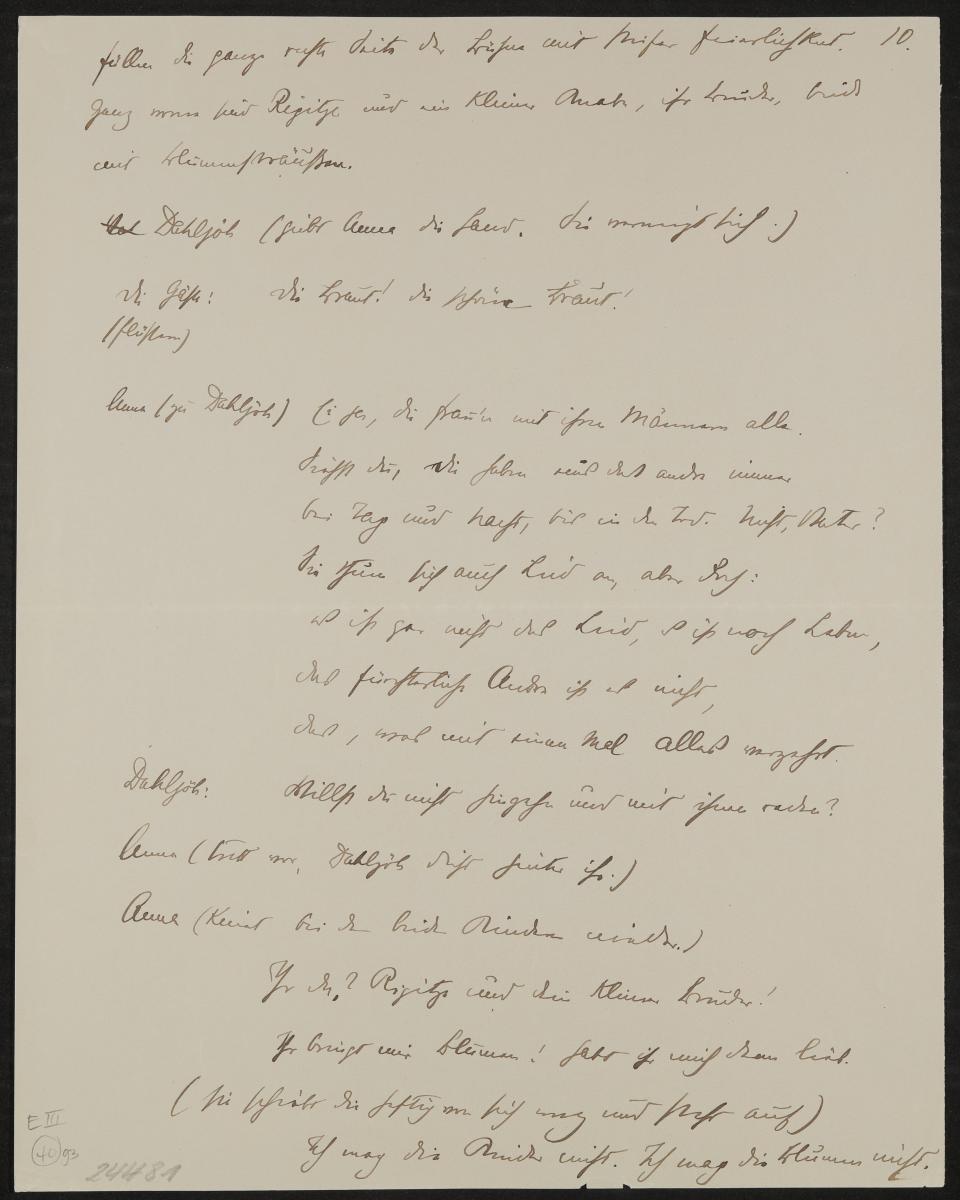 füllen die ganze rechte Seite der Bühne mit steifer Feierlichkeit. 10.
Ganz vorne sind Rigitze und ein kleiner Knabe, ihr Bruder, beide
mit Blumensträußen.
Dahljöh (giebt Anna die Hand. Sie verneigt sich.)
Die Gäste: Die Braut! die schöne Braut!
(flüstern)
Anna (zu Dahljöh) die Frau'n mit ihren Männern alle.
Siehst du, die haben eins das andre immer
bei Tag und Nacht, bis in den Tod. Nicht, Vater?
Sie thuen sich auch Leid an, aber doch:
es ist gar nicht das Leid, es ist noch Leben,
das fürchterliche Andre ist es nicht,
das, was mit einem Mal alles verzehrt.
Dahljöh: Willst du nicht hingehn und mit ihnen reden?
Anna (tritt vor, Dahljöh dicht hinter ihr.)
Anna (kniet bei den beiden Kindern nieder.)
Ihr da? Rigitze und dein kleiner Bruder!
Ihr bringt mir Blumen! habt ihr mich denn lieb.
(sie schiebt sie heftig von sich weg und steht auf)
Ich mag die Kinder nicht. Ich mag die Blumen nicht.
E III
40 93
24481